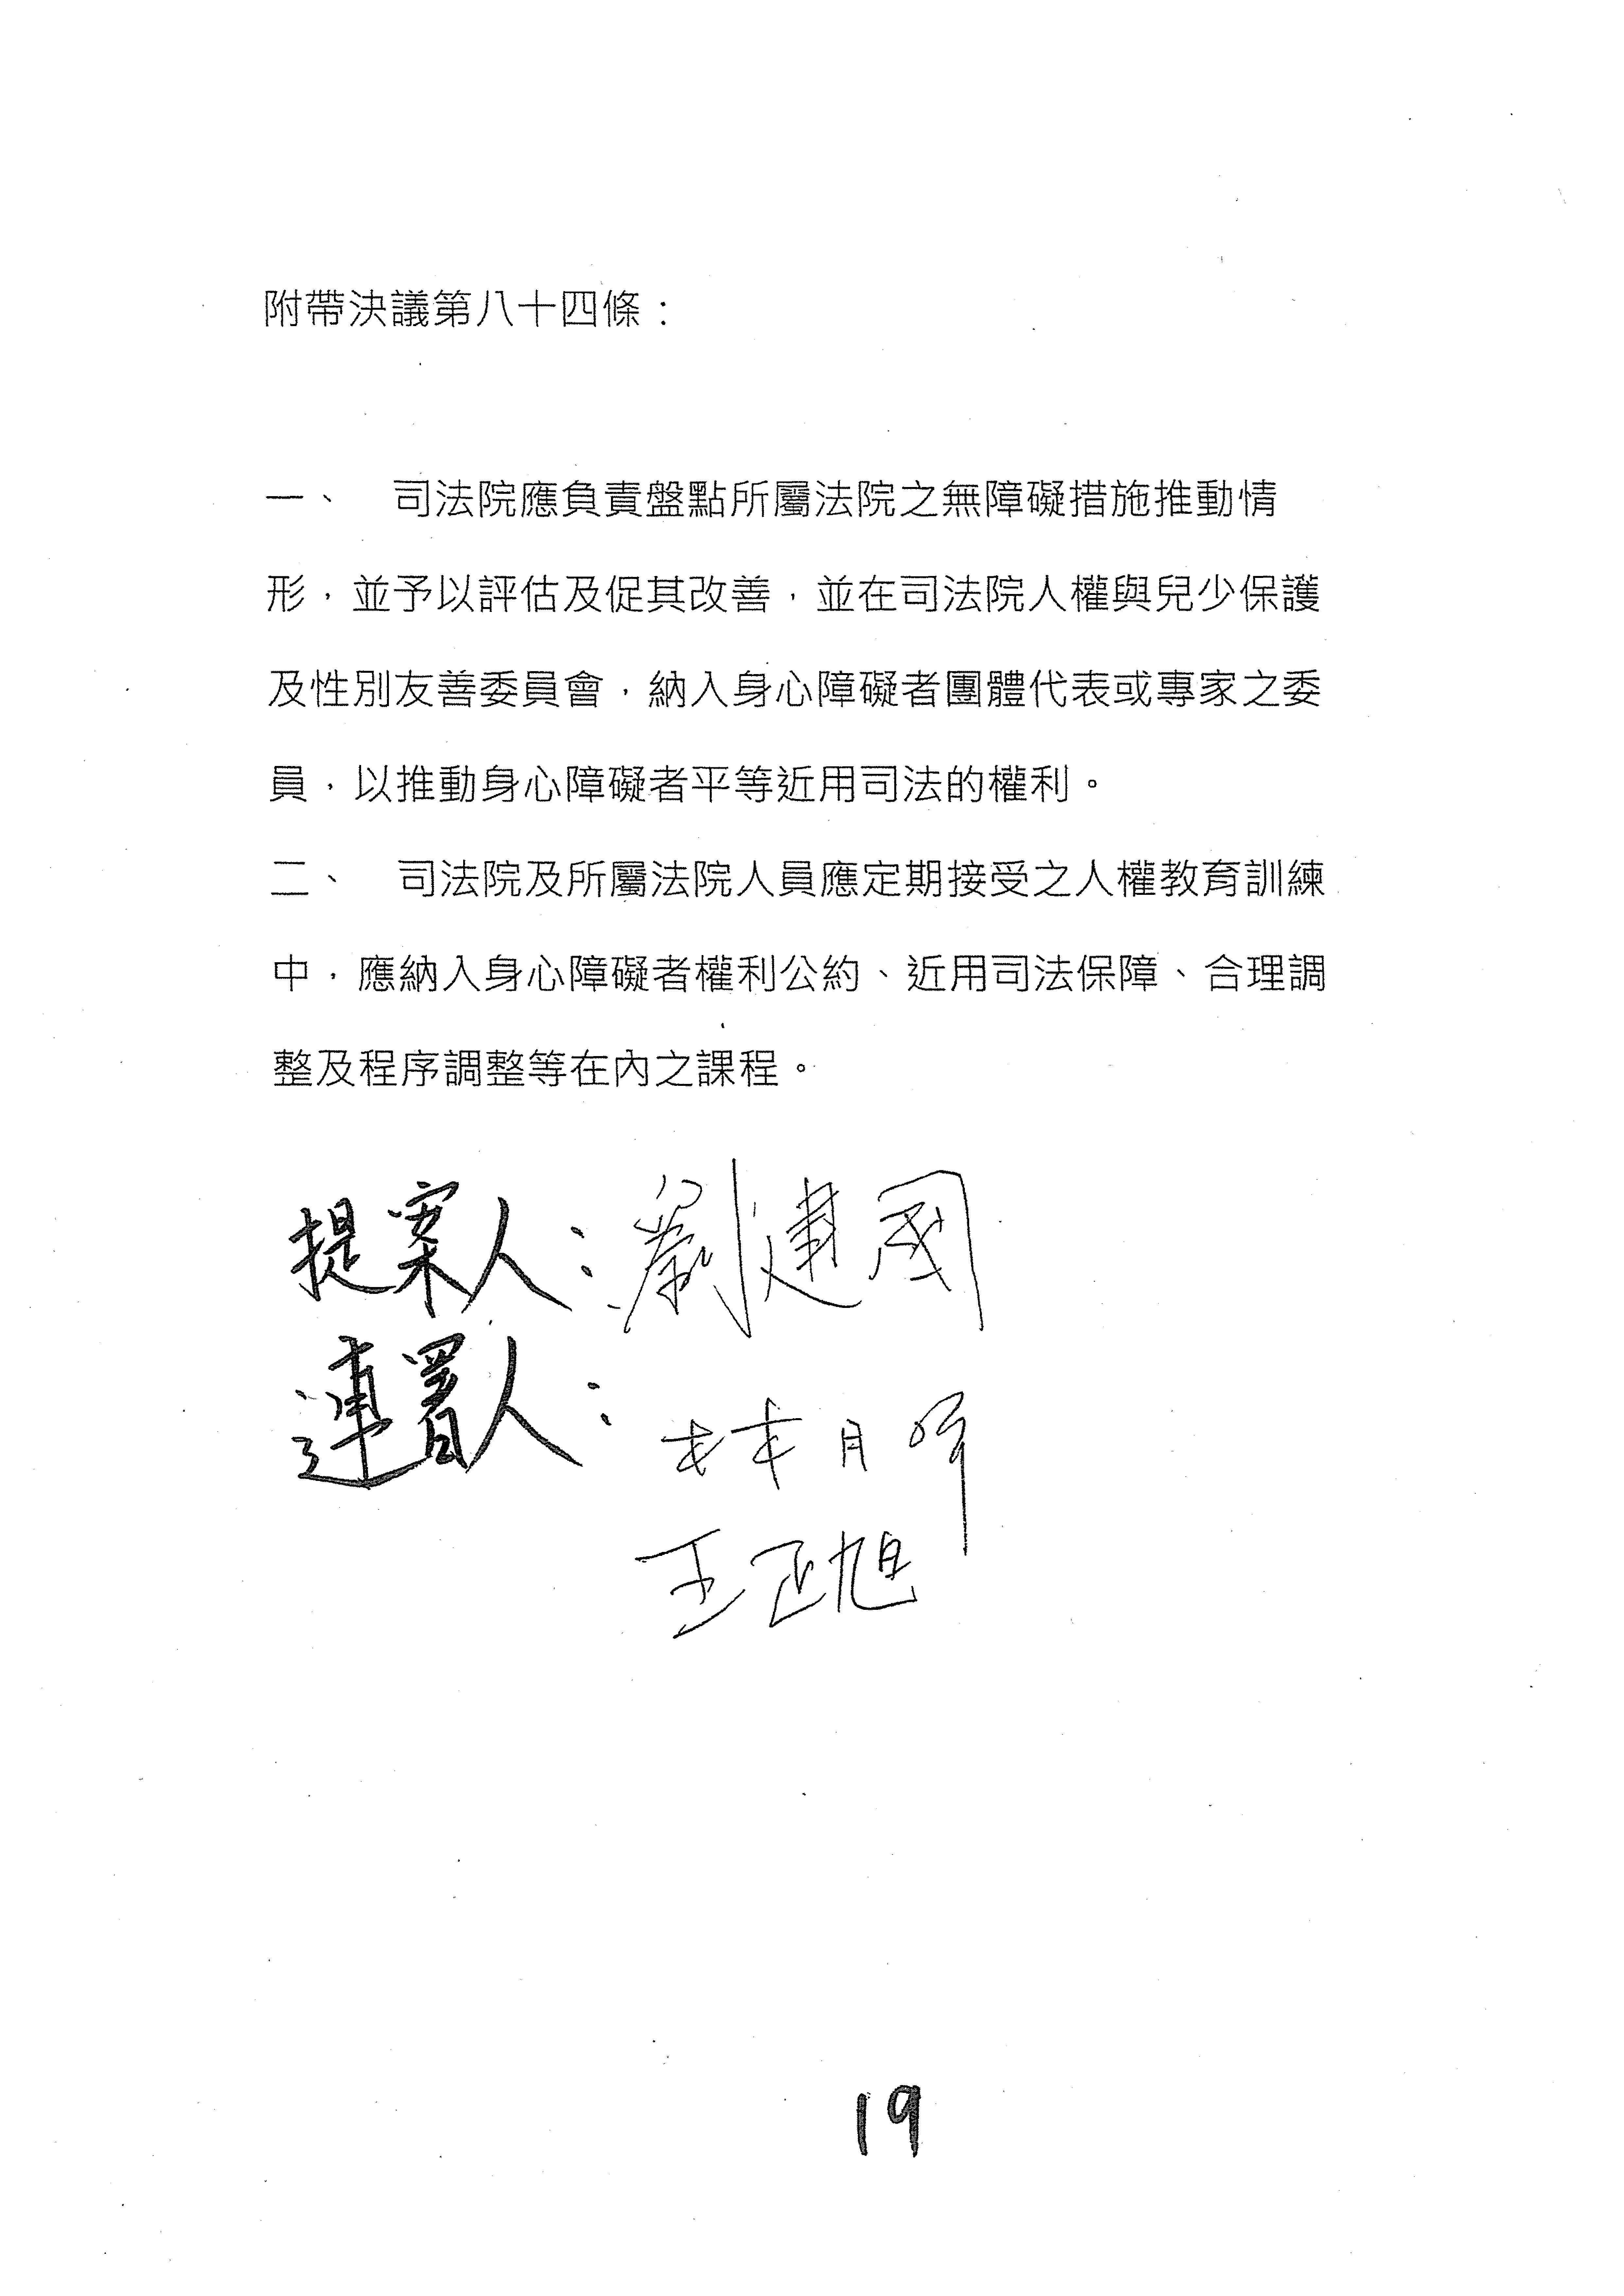 附帶決議第八十四條：
一、　司法院應負責盤點所屬法院之無障礙措施推動情
形，並予以評估及促其改善，並在司法院人權與兒少保護
及性別友善委員會，納入身心障礙者團體代表或專家之委
員，以推動身心障礙者平等近用司法的權利。
二、　司法院及所屬法院人員應定期接受之人權教育訓練
中，應納入身心障礙者權利公約、近用司法保障、合理調
整及程序調整等在內之課程。
提案人：劉建國
連署人：
林月琴
王正旭
19